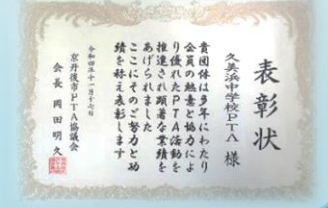 表彰状
久美浜中学校PTA 様
貴団体は多年にわたり
会員の熱意と協力によ
り優れたPTA活動を
推進され顕著な業績を
あげられました
ここにそのご努力と功
績を称え表彰します
令和四年十一月十七日
京丹後市PTA協議会
会長 岡田明久